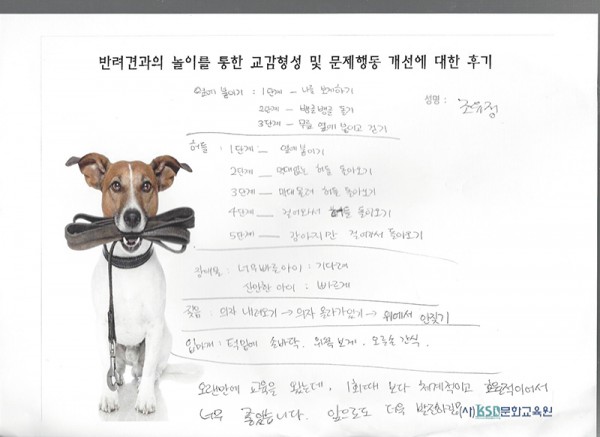 반려견과의 놀이를 통한 교감형성 및 문제행동 개선에 대한 후기
옆에 붙이기 : 1단계 - 나를 보게하기
성명 : 조유정
2단계 - 뱅글뱅글 돌기
3단계 - 무릎 옆에 붙이고 걷기
허들 : 1단계 — 옆에붙이기
2단계 — 막대없는 허들 돌아오기
3단계 — 막대올려 허들 돌아오기
4단계 — 걸어와서 허들 돌아오기
5단계 — 강아지만 걸어가서 돌아오기
장애물 : 너무빠른아이 : 기다려
산만한 아이 : 빠르게
짖음 : 의자 내려오기 → 의자 올라가있기 → 위에서 안짖기
입마개 : 턱밑에 손바닥. 위쪽 보게. 오른손 간식.
오랜만에 교육을 왔는데, 1회때 보다 체계적이고 효율적이어서
너무 좋았습니다. 앞으로도 더욱
(사)KSD문화교육원